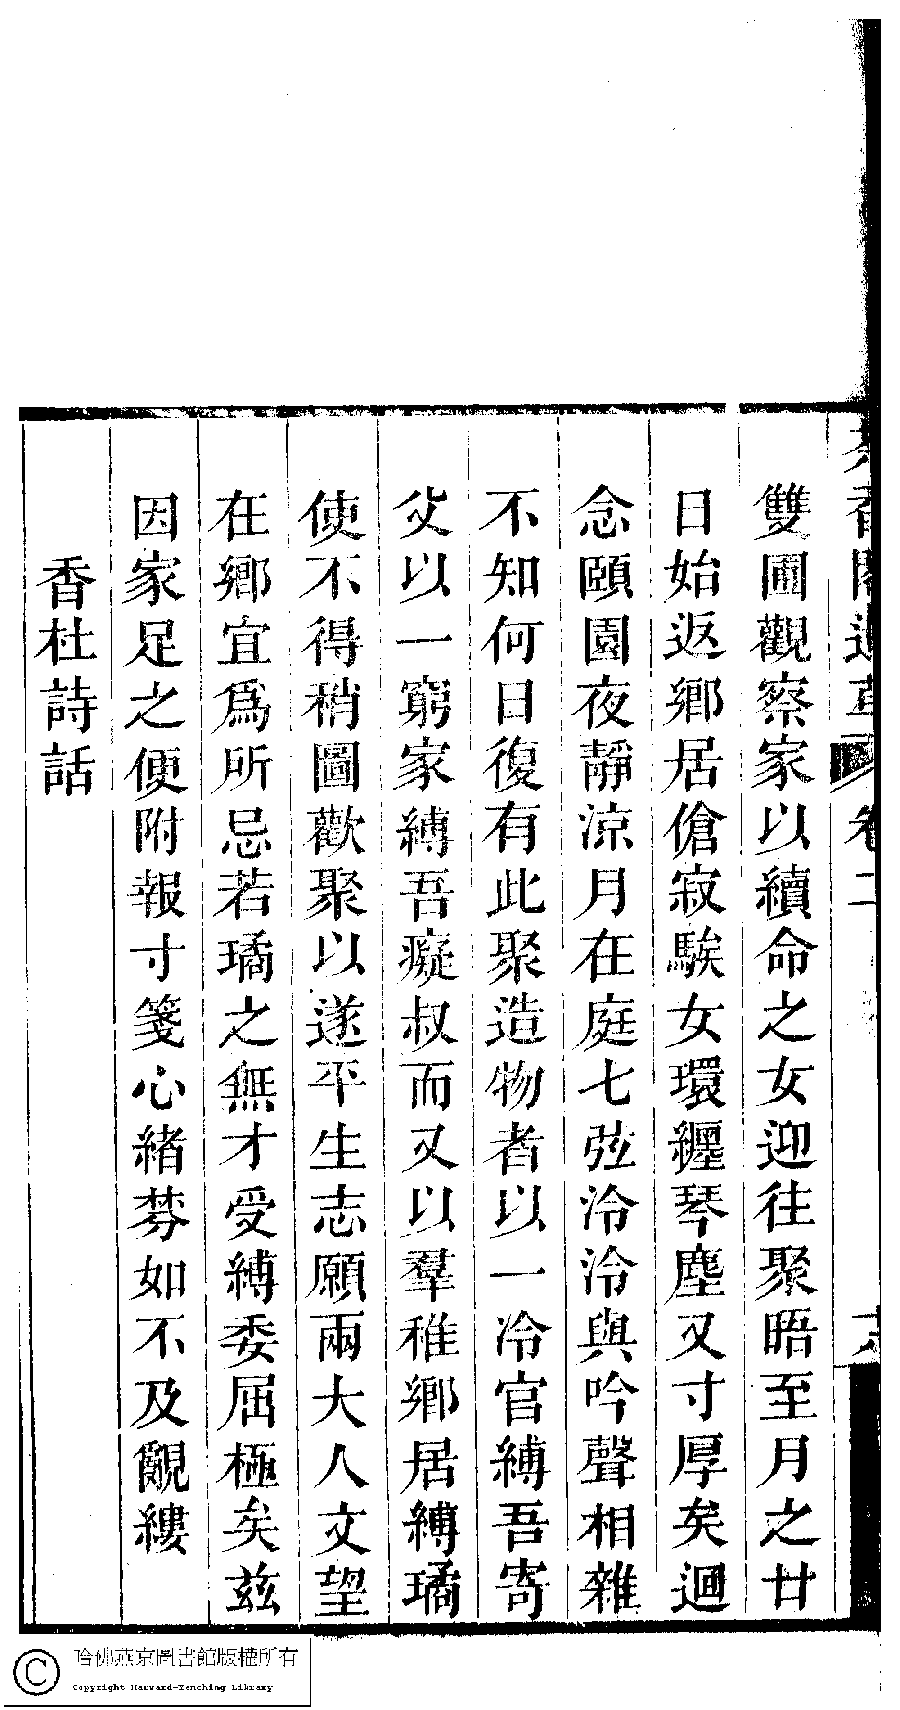 雙圃觀察家以續命之女迎往聚晤至月之廿
日始返鄉居傖寂騃女環纒琴塵又寸厚矣迴
念頤園夜靜涼月在庭七弦泠泠與吟聲相雜
不知何日復有此聚造物者以一冷官縛吾寄
父以一窮家縛吾癡叔而又以羣稚鄉居縛璚
使不得稍圖歡聚以遂平生志願兩大人文望
在鄉宜爲所忌若璚之無才受縛委屈極矣茲
因家足之便附報寸箋心緒棼如不及覼縷
香杜詩話
卷二
哈佛燕京圖書館版權所有
Copyright Harvard-Yenching Library